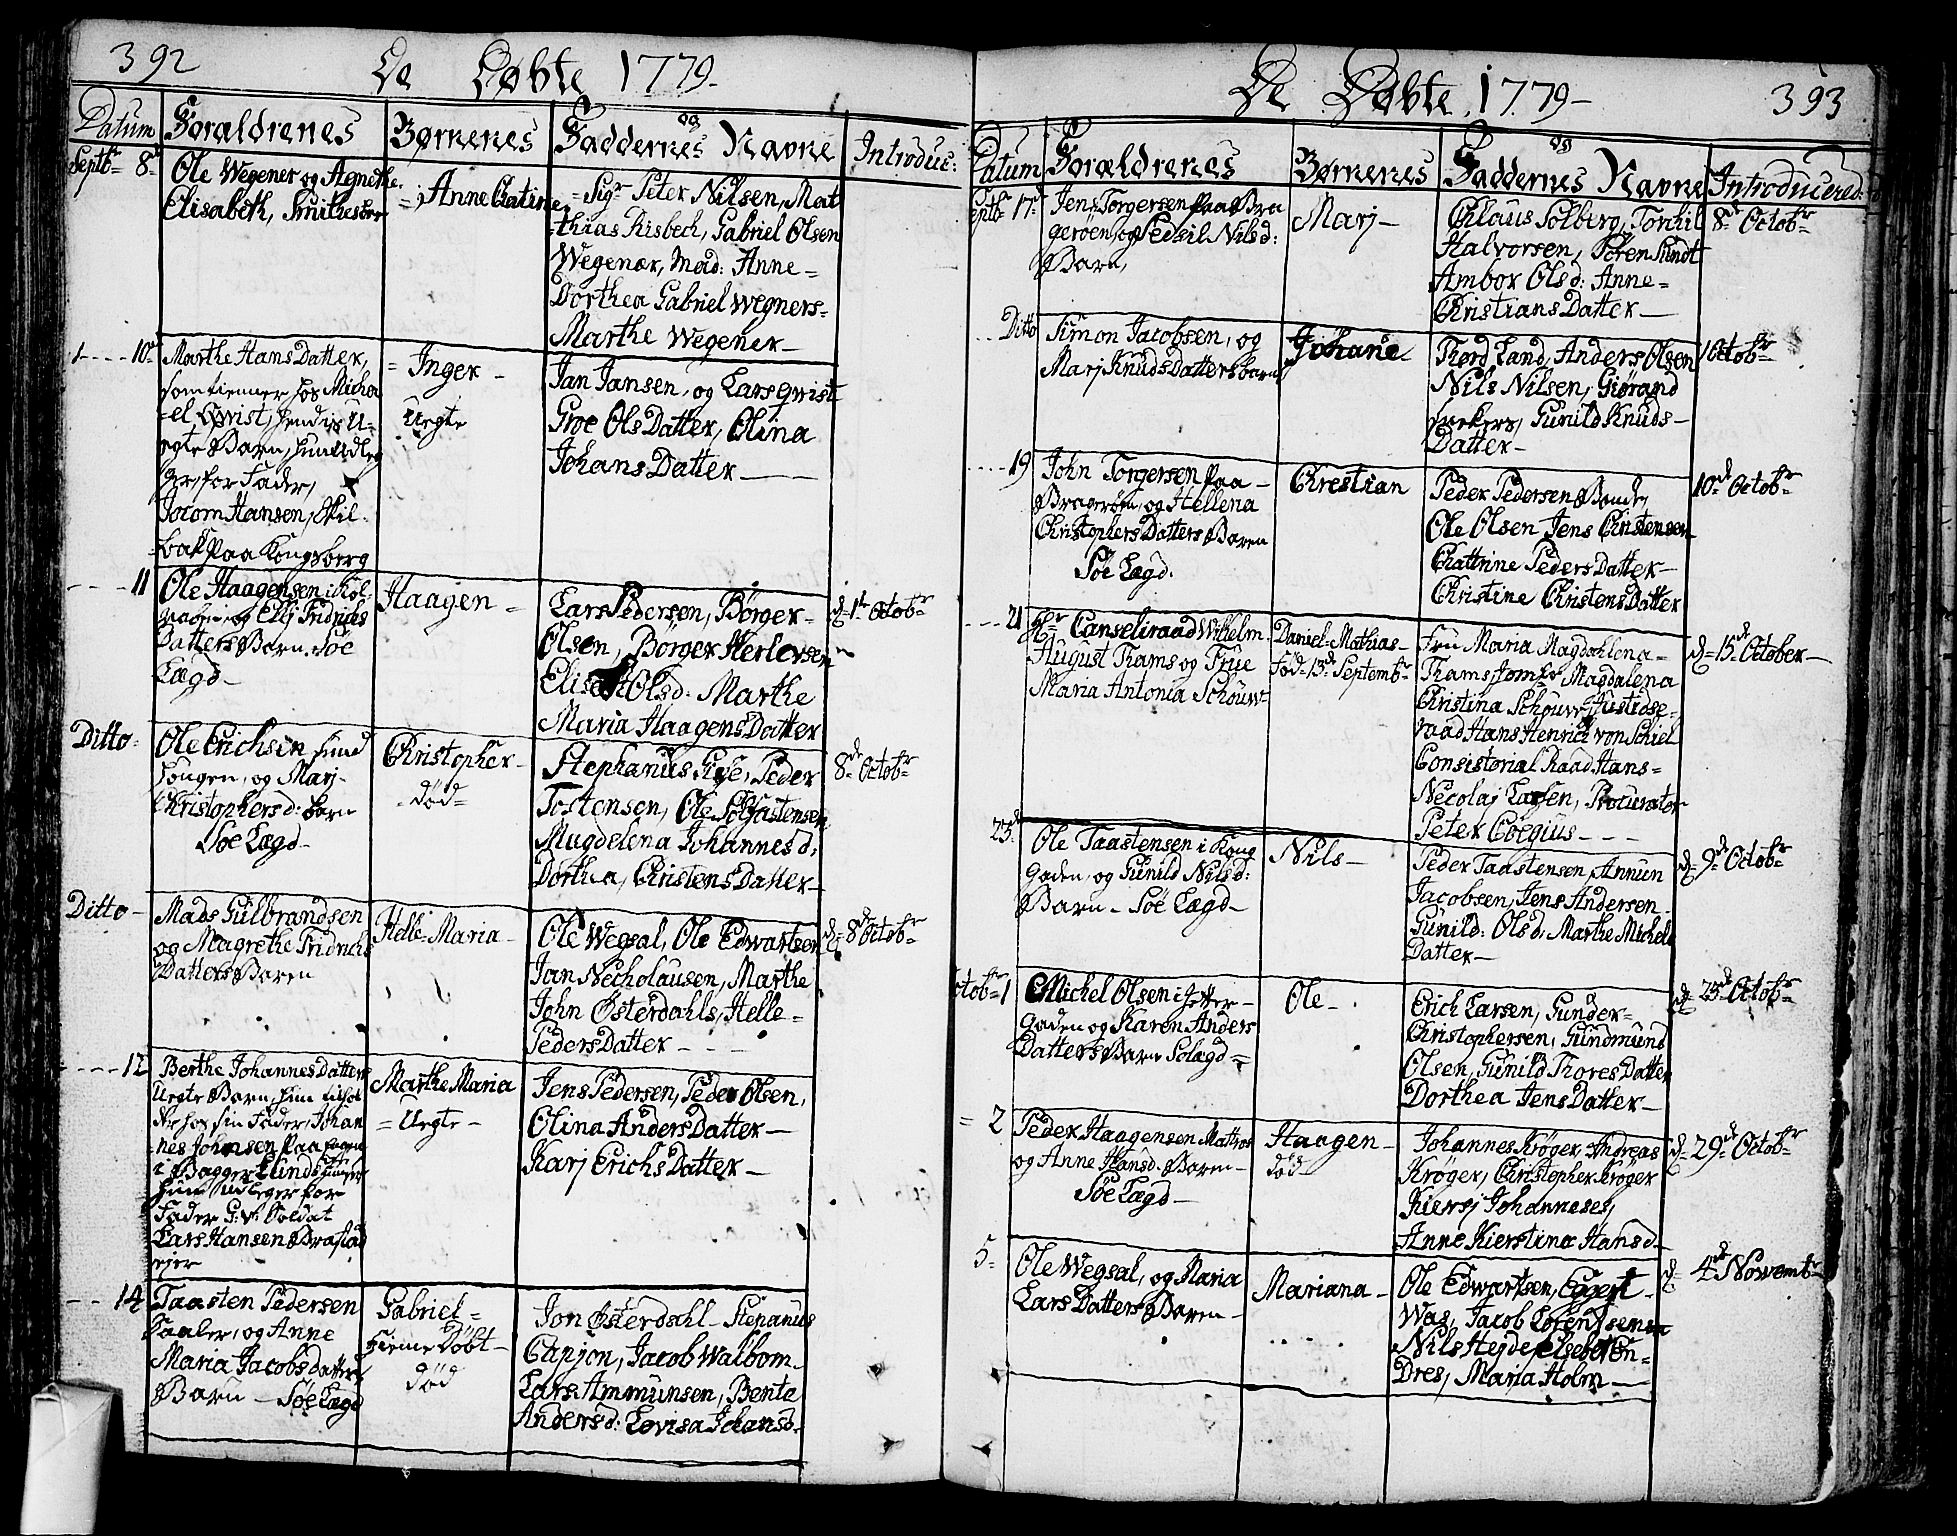 392
De Døbte 1779-
Datum
Forældrenes
Børnenes
og
Faddernes Navne
Introduc:
Septbr 8de
Ole Wegener og Agnethe
Elisabeth, Smithes barn
Anne Catine
Sigr Peter Nilsen, Mat
thias Risbech, Gabriel Olsen
Wegenær, Mad: Anne=
Dorthea Gabriel Wegners=
Marthe Wegener-
10de
Marthe HansDatter,
som tienner hos Micha
el Qvist, hendis U-
egte Barn, hun Udleg
ger for Fader,
Jocom Hansen,
Paa Kongsberg
= Inger -
Uegte
Jan Jansen, og Lars qvist
Groe OlsDatter, Olina
JohansDatter
11
Ole Haagensen i
og Ellj Fridrichs
Datters Barn. Søe
Lægd-
Haagen =
Lars Pedersen, Børger-
Olsen, Børger Herlovsen
Elise Olsd: Marthe
Maria HaagensDatter
d=1te Octobr
Ditto-
Ole Erichsen
og Marj-
Christophersd: barn
Søe Lægd-
Christopher-
død=
Stephanus Göe, Peder
Tostensen, Ole
Mugdelena Johannesd,
Dorthea, ChristensDatter-
8de Octobr
Ditto-
Mads Gulbrandsen
og Magrethe Fridrichs
Datters Baren
Helle Maria-
Ole Wegsal, Ole Edwartsen
Jan Necholausen, Marthe
John Østerdahls, Helle-
PedersDatter- - -
d-8de Octobr
12
Berthe JohannesDatters
Uegte Barn, hun
hos sin Fader, Johan
nes Johnsen Paa
i Bagger
hun Udleger for
Fader G: v: Soldat
Lars Hansen
ejer
Marthe Maria
= Uegte-
Jens Pedersen, Peder Olsen,
Olina AndersDatter-
Karj ErichsDatter-
14
Taasten Pedersen
og Anne
Maria Jacobsdatters
Barn - Søe Lægd
Gabriel=
Hieme Døbt-
død
Jon Østerdahl- Stepanus
Capjon, Jacob Walbom-
Lars Ammunsen, Benta
Andersd: Lovisa Johansd-
De Døbte 1779-
393
Datum
Forældrenes
Børnenes
og
Faddernes Navne
Introducered:
Septbr 17de
Jens Torgersen Paa Bra
gerøen, og Pedsil Nilsd:
Barn,
Marj-
Claus Solberg, Torkil
Halvorsen, Søren Sundt
Ambor Olsd: Anne=
ChristiansDatter-
8de Octobr
Ditto
Simon Jacobsen, og
Marj KnudsDatters barn
Johane-
Thord Land, Anders Olsen
Nils Nilsen, Giørand
Gunild Knuds-
Datter-
1 Octobr
19
John Torgersen Paa-
Bragerøen, og Hellena
ChristophersDatters Baren
Søe Lægd.
Chrestian
Peder Pedersen
Ole Olsen Jens Christensen
Chattrine PedersDatter-
Christine ChristensDatter
10de Octobr
21
Hr Canseliraad Wilhelm
August Thams og Frue
Maria Antonia Schouw-
Daniel=Mathias-
Fød=13de Septembr
Fru Maria Magdahlena-
Thams Jomfr Magdalena
Christina Schouw, Justidse-
raad Hans Henrich von Schiel
Consistorial Raad Hans=
Necolaj Lassen, Procurator
Peter Coegius- - -
d=15de October-
23de
Ole Taastensen i Kong
Gaden, og Gunild Nilsd:
Barn - Søe Lægd-
Nils-
Peder Taastensen, Annun
Jacobsen, Jens Andersen-
Gunild: Olsd. Marthe Michels
Datter-
d=9de Octobr
Octobr=1
Michel Olsen i
Gaden og Karen Anders
Datters Barn Solægd=
Ole-
Erich Larsen, Gunder-
Christophersen, Gundmund
Olsen, Gunild ThoresDatter
Dorthea JensDatter-
d= 23de Octobr
= 2
Peder Haagensen Matros
og Anne Hansd. Baren-
Søe Lægd-
Haagen-
død
Johannes Krøger, Andreas
Krøger, Christopher Krøger
Kiersj Johanneses,
Anne Kierstina Hansd-
d- 29de Octobr
5-
Ole Wegsal, og Maria
LarsDatters Baren-
Mariana-
Ole Edwartsen, Eggert-
Was, Jacob Lorentsen
Nils Hejde, Elsebe Ven-
Dres, Maria Holm-
d 4de Novembr